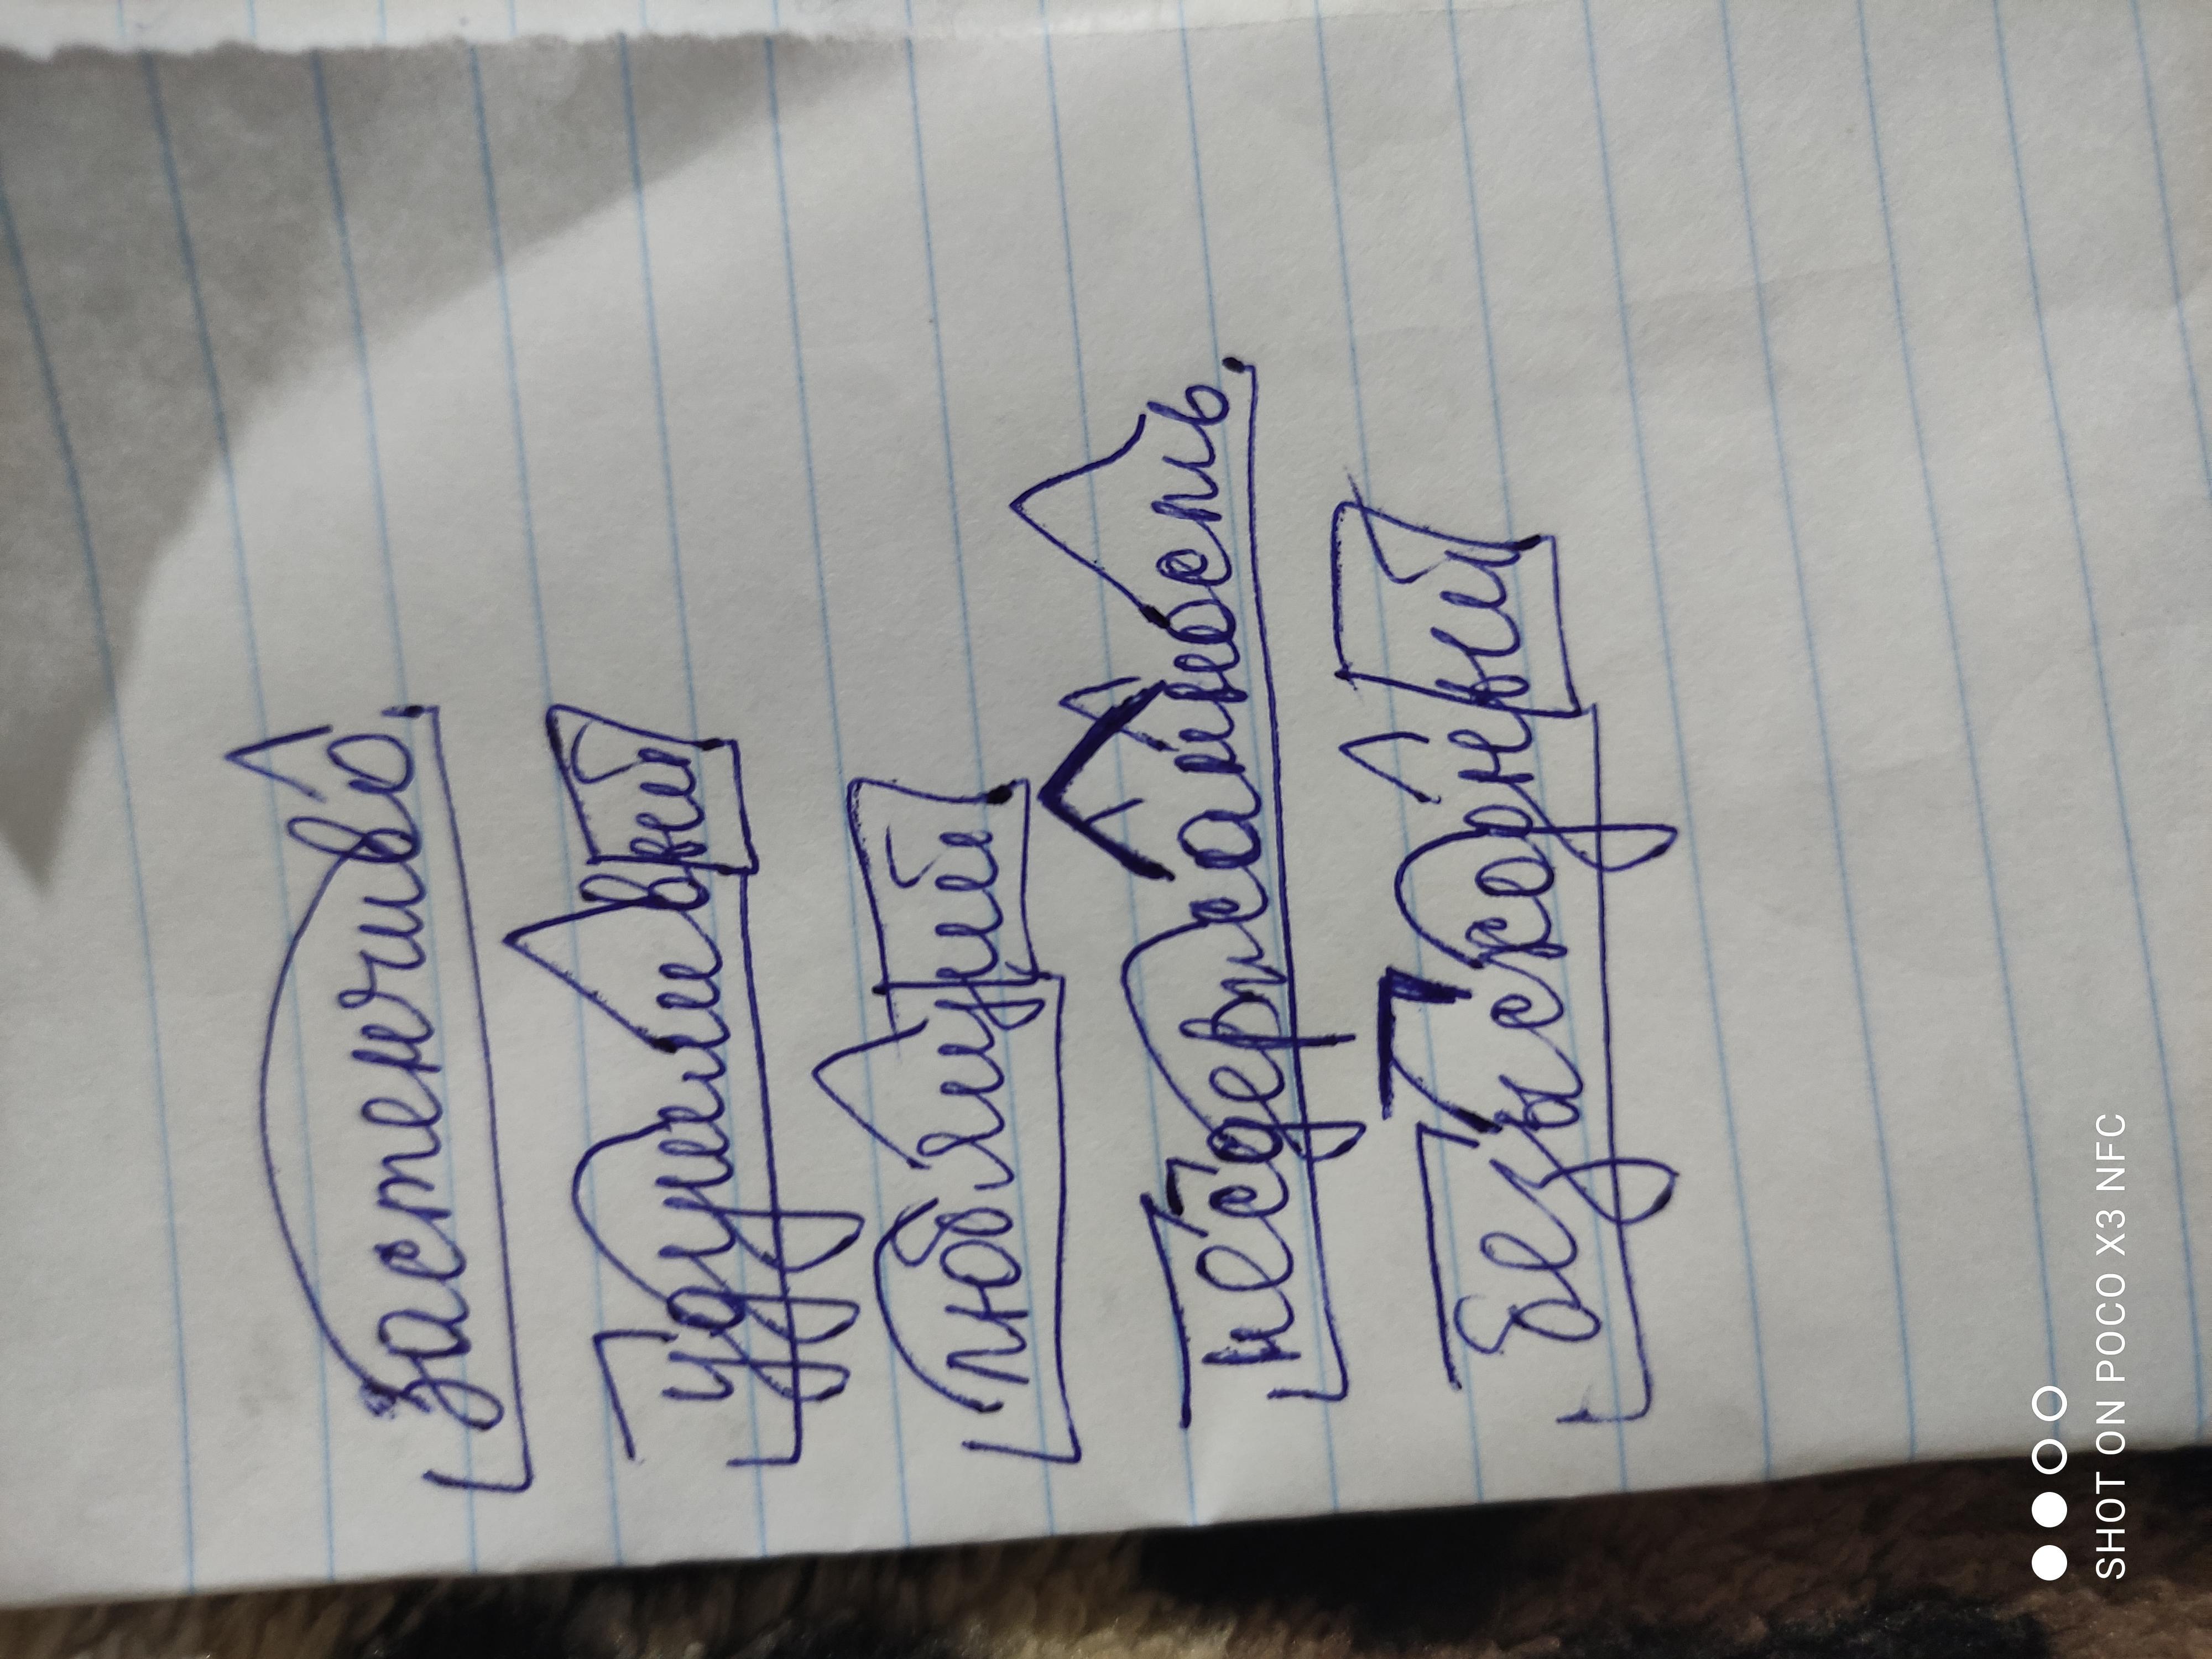 застенчиво
удушливый
любящий
недержанность
безысходный
SHOT ON POCO X3 NFC